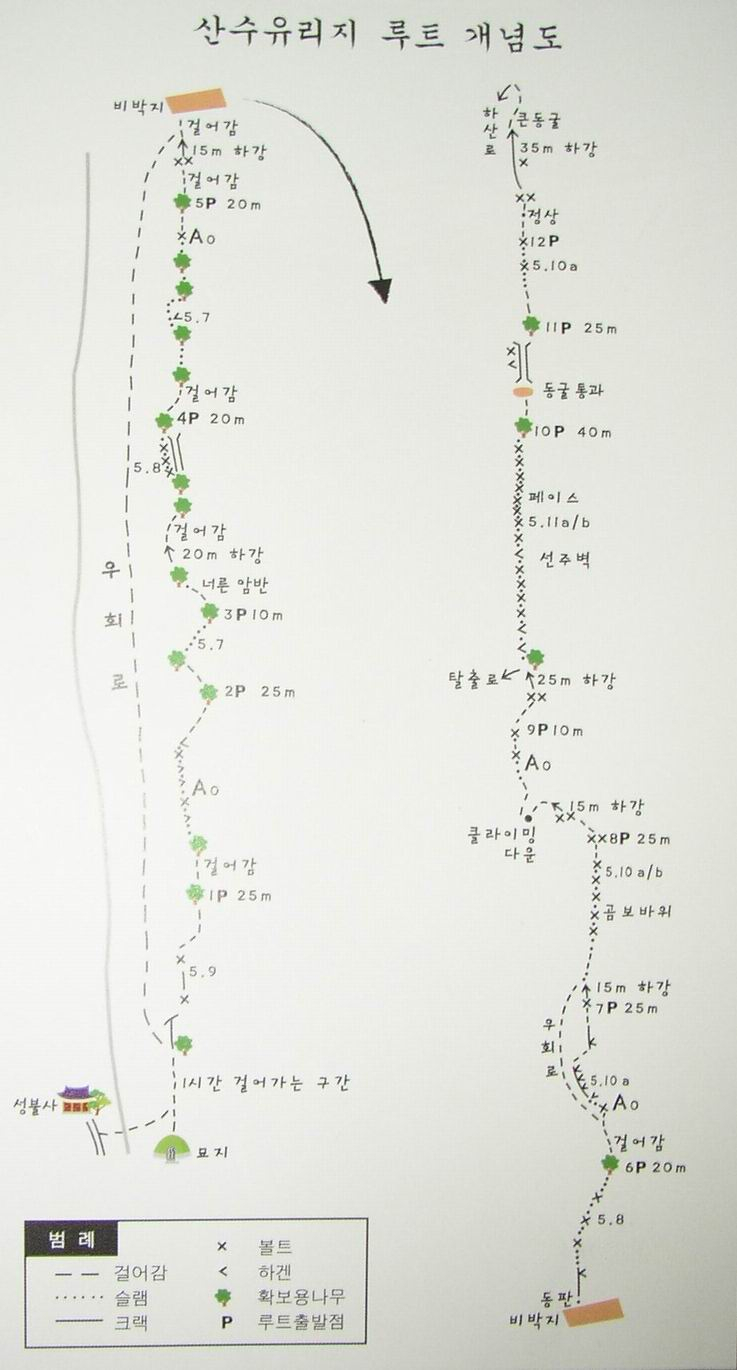 산수유리지 루트 개념도
비박지
걸어감
15m 하강
걸어감
5P 20m
A0
5.7
걸어감
4P 20m
5.8
걸어감
20m 하강
너른 암반
3P 10m
5.7
2P 25m
A0
걸어감
1P 25m
5.9
우회로
1시간 걸어가는 구간
성불사
묘지
하산로
큰동굴
35m 하강
정상
12P
5.10a
11P 25m
동굴통과
10P 40m
페이스
5.11a/b
선주벽
탈출로
25m 하강
9P 10m
A0
15m 하강
클라이밍
다운
8P 25m
5.10 a/b
곰보바위
15m 하강
7P 25m
우회로
5.10a
A0
걸어감
6P 20m
5.8
동판
비박지
범례
걸어감
슬램
크랙
볼트
하겐
확보용나무
P 루트출발점